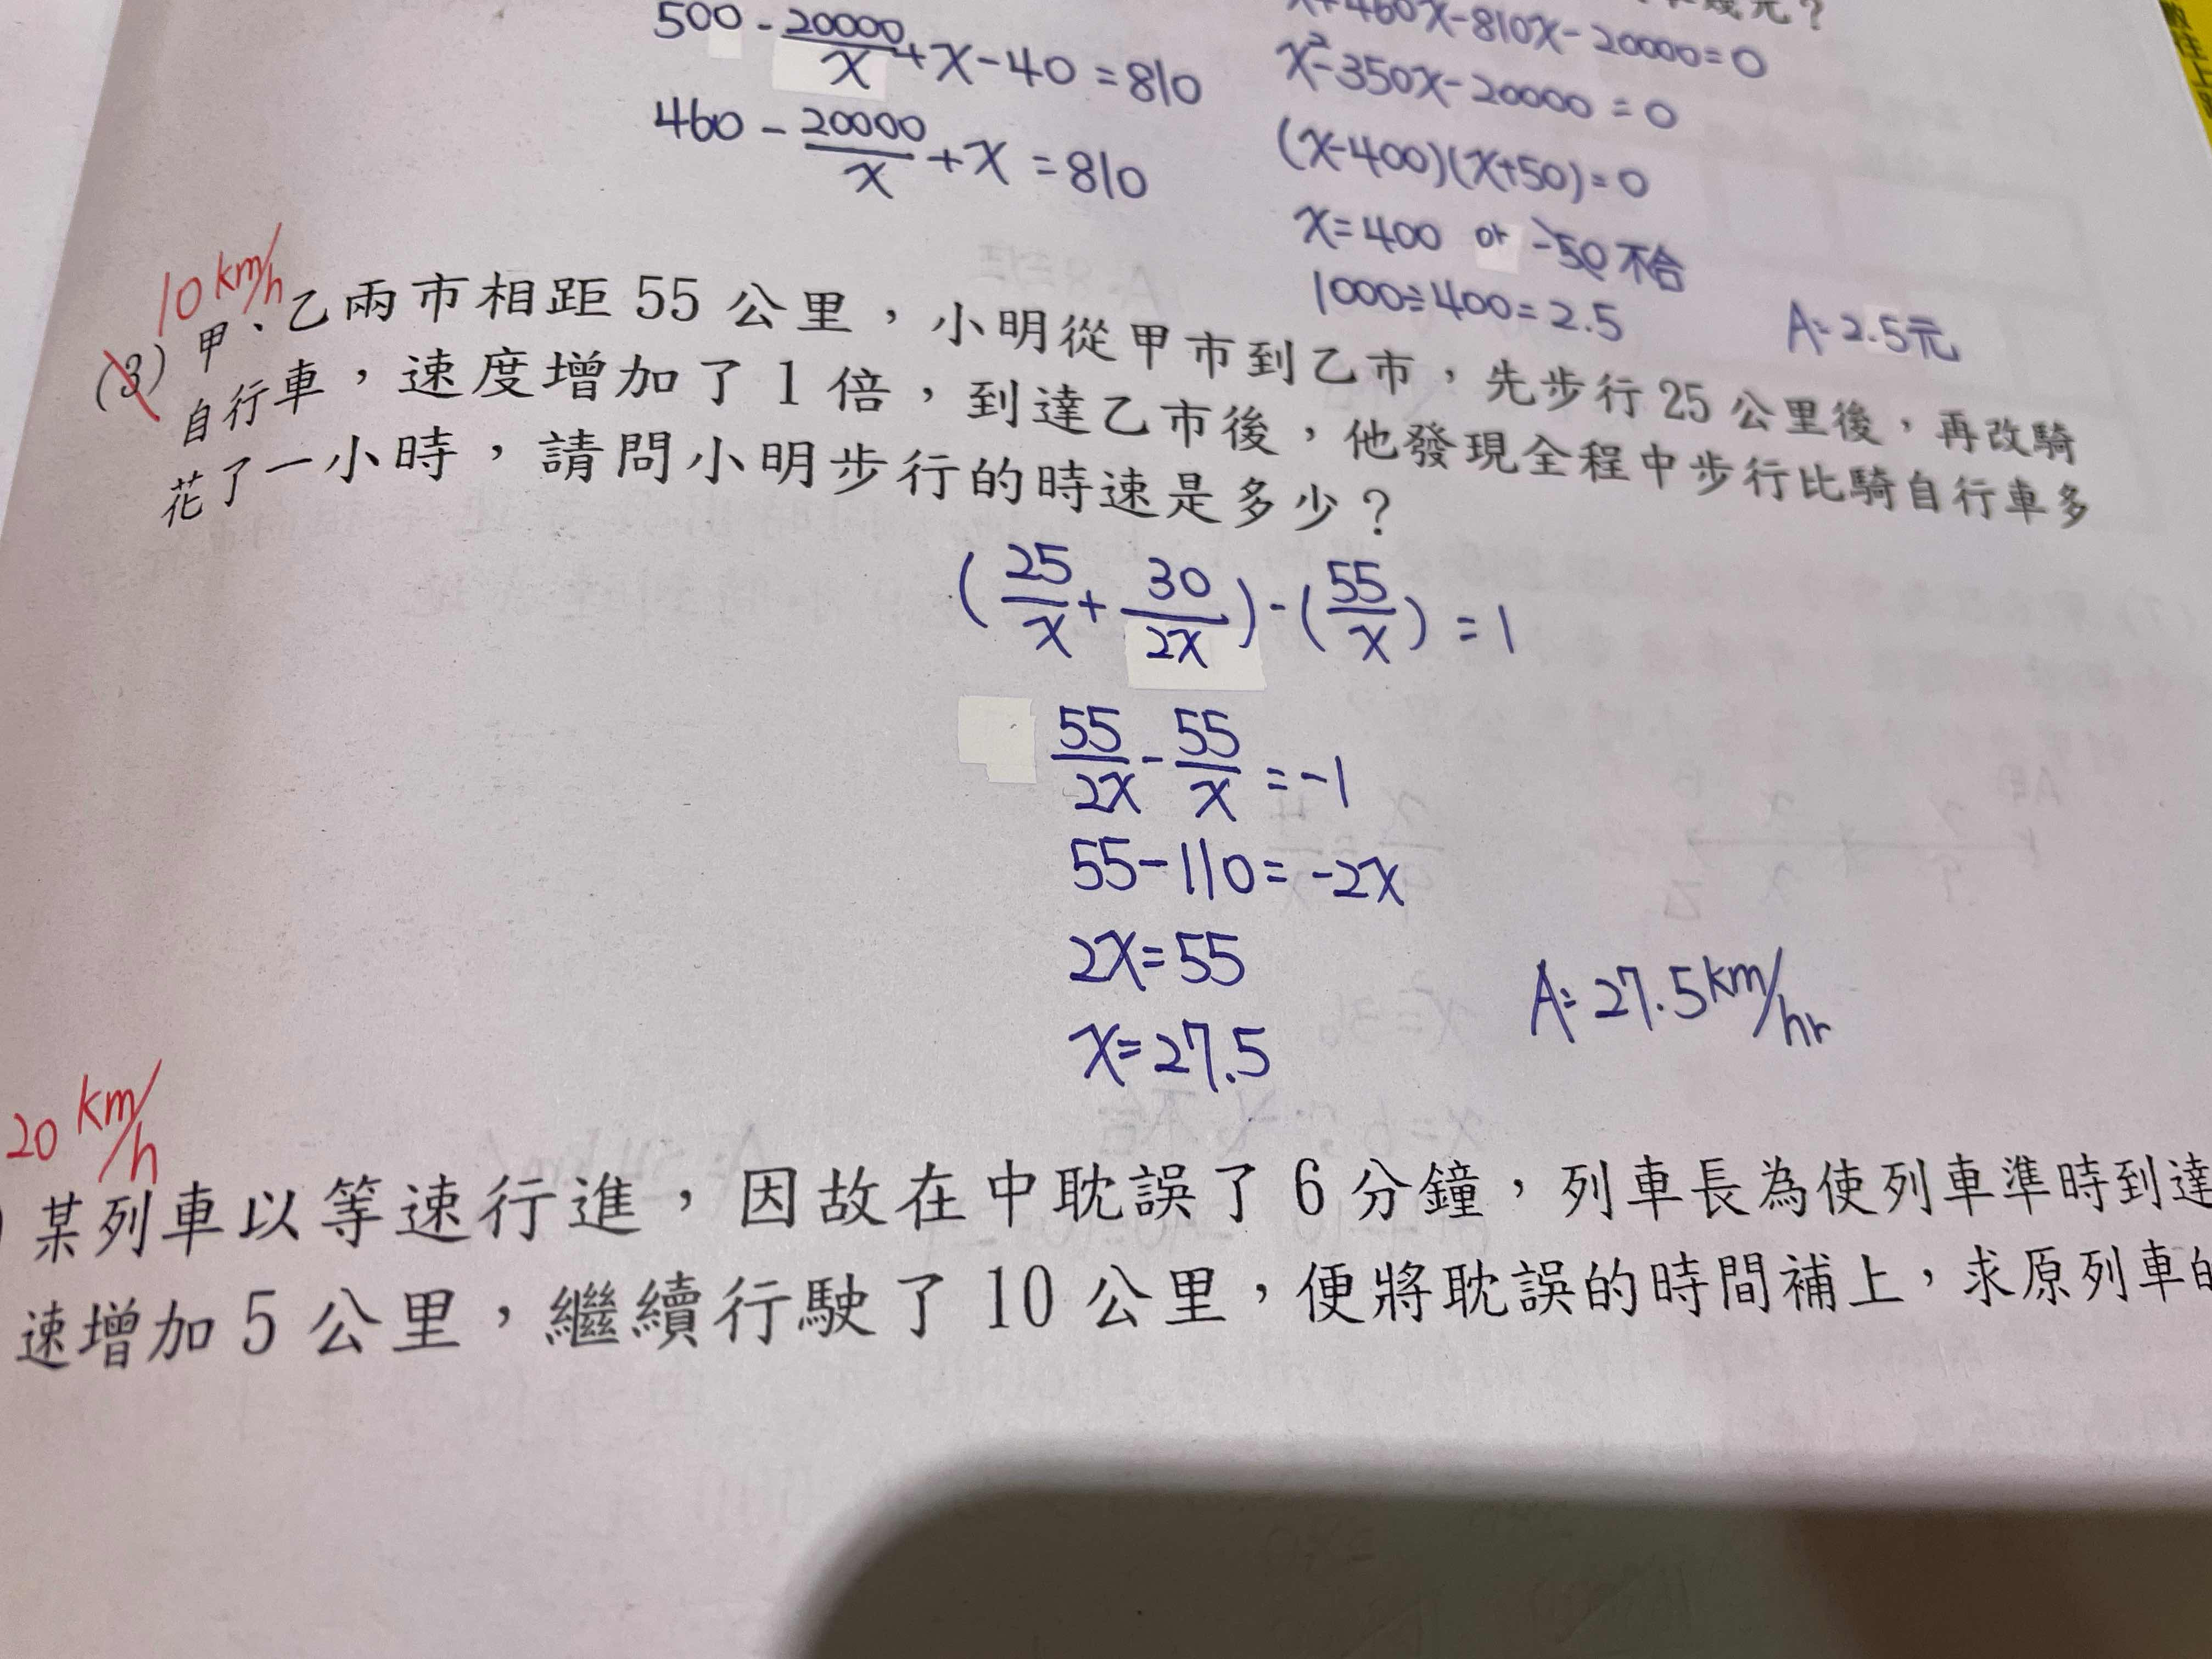 500 - 20000/x + x - 40 = 810
460 - 20000/x + x = 810
460x - 810x - 20000 = 0
x² - 350x - 20000 = 0
(x-400)(x+50) = 0
x = 400 or -50 不合
1000÷400 = 2.5
A: 2.5元
10 km/h
(3) 甲、乙兩市相距 55 公里，小明從甲市到乙市，先步行 25 公里後，再改騎
自行車，速度增加了 1 倍，到達乙市後，他發現全程中步行比騎自行車多
花了一小時，請問小明步行的時速是多少？
(25/x + 30/2x) - (55/x) = 1
55/2x - 55/x = -1
55 - 110 = -2x
2x = 55
x = 27.5
A: 27.5 km/hr
20 km/h
) 某列車以等速行進，因故在中耽誤了 6 分鐘，列車長為使列車準時到達
速增加 5 公里，繼續行駛了 10 公里，便將耽誤的時間補上，求原列車的